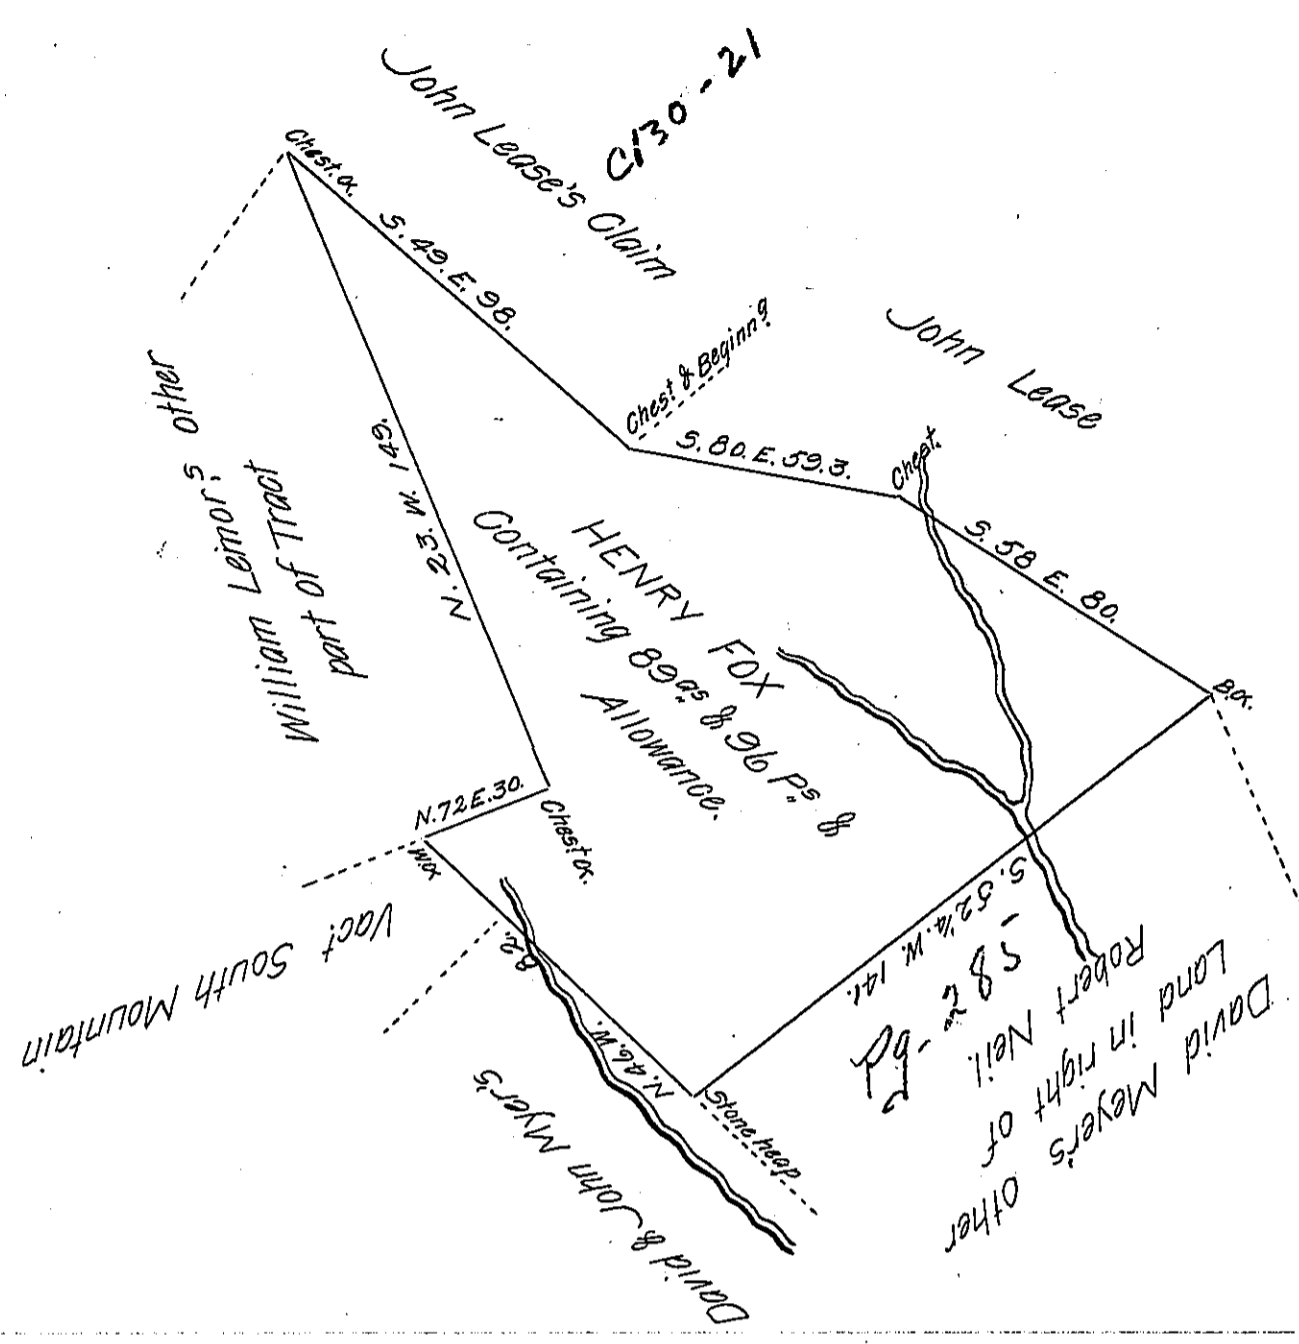 C130-21
John Lease's Claim
Chest. o.
S. 49. E. 98.
Chest & Beginn'g
John Lease
S. 80. E. 59.3.
Chest.
S. 58 E. 80.
B.o.
William Leimor's other
part of Tract
N. 23. W. 149.
HENRY FOX
Containing 89 as & 96 Ps &
Allowance.
N. 72 E. 30.
Chest o.
Vact South Mountain
82.
N. 46. W.
Stone heap
S. 52 1/4. W. 141.
David & John Myer's
David Meyer's other
Land in right of
Robert Neil.